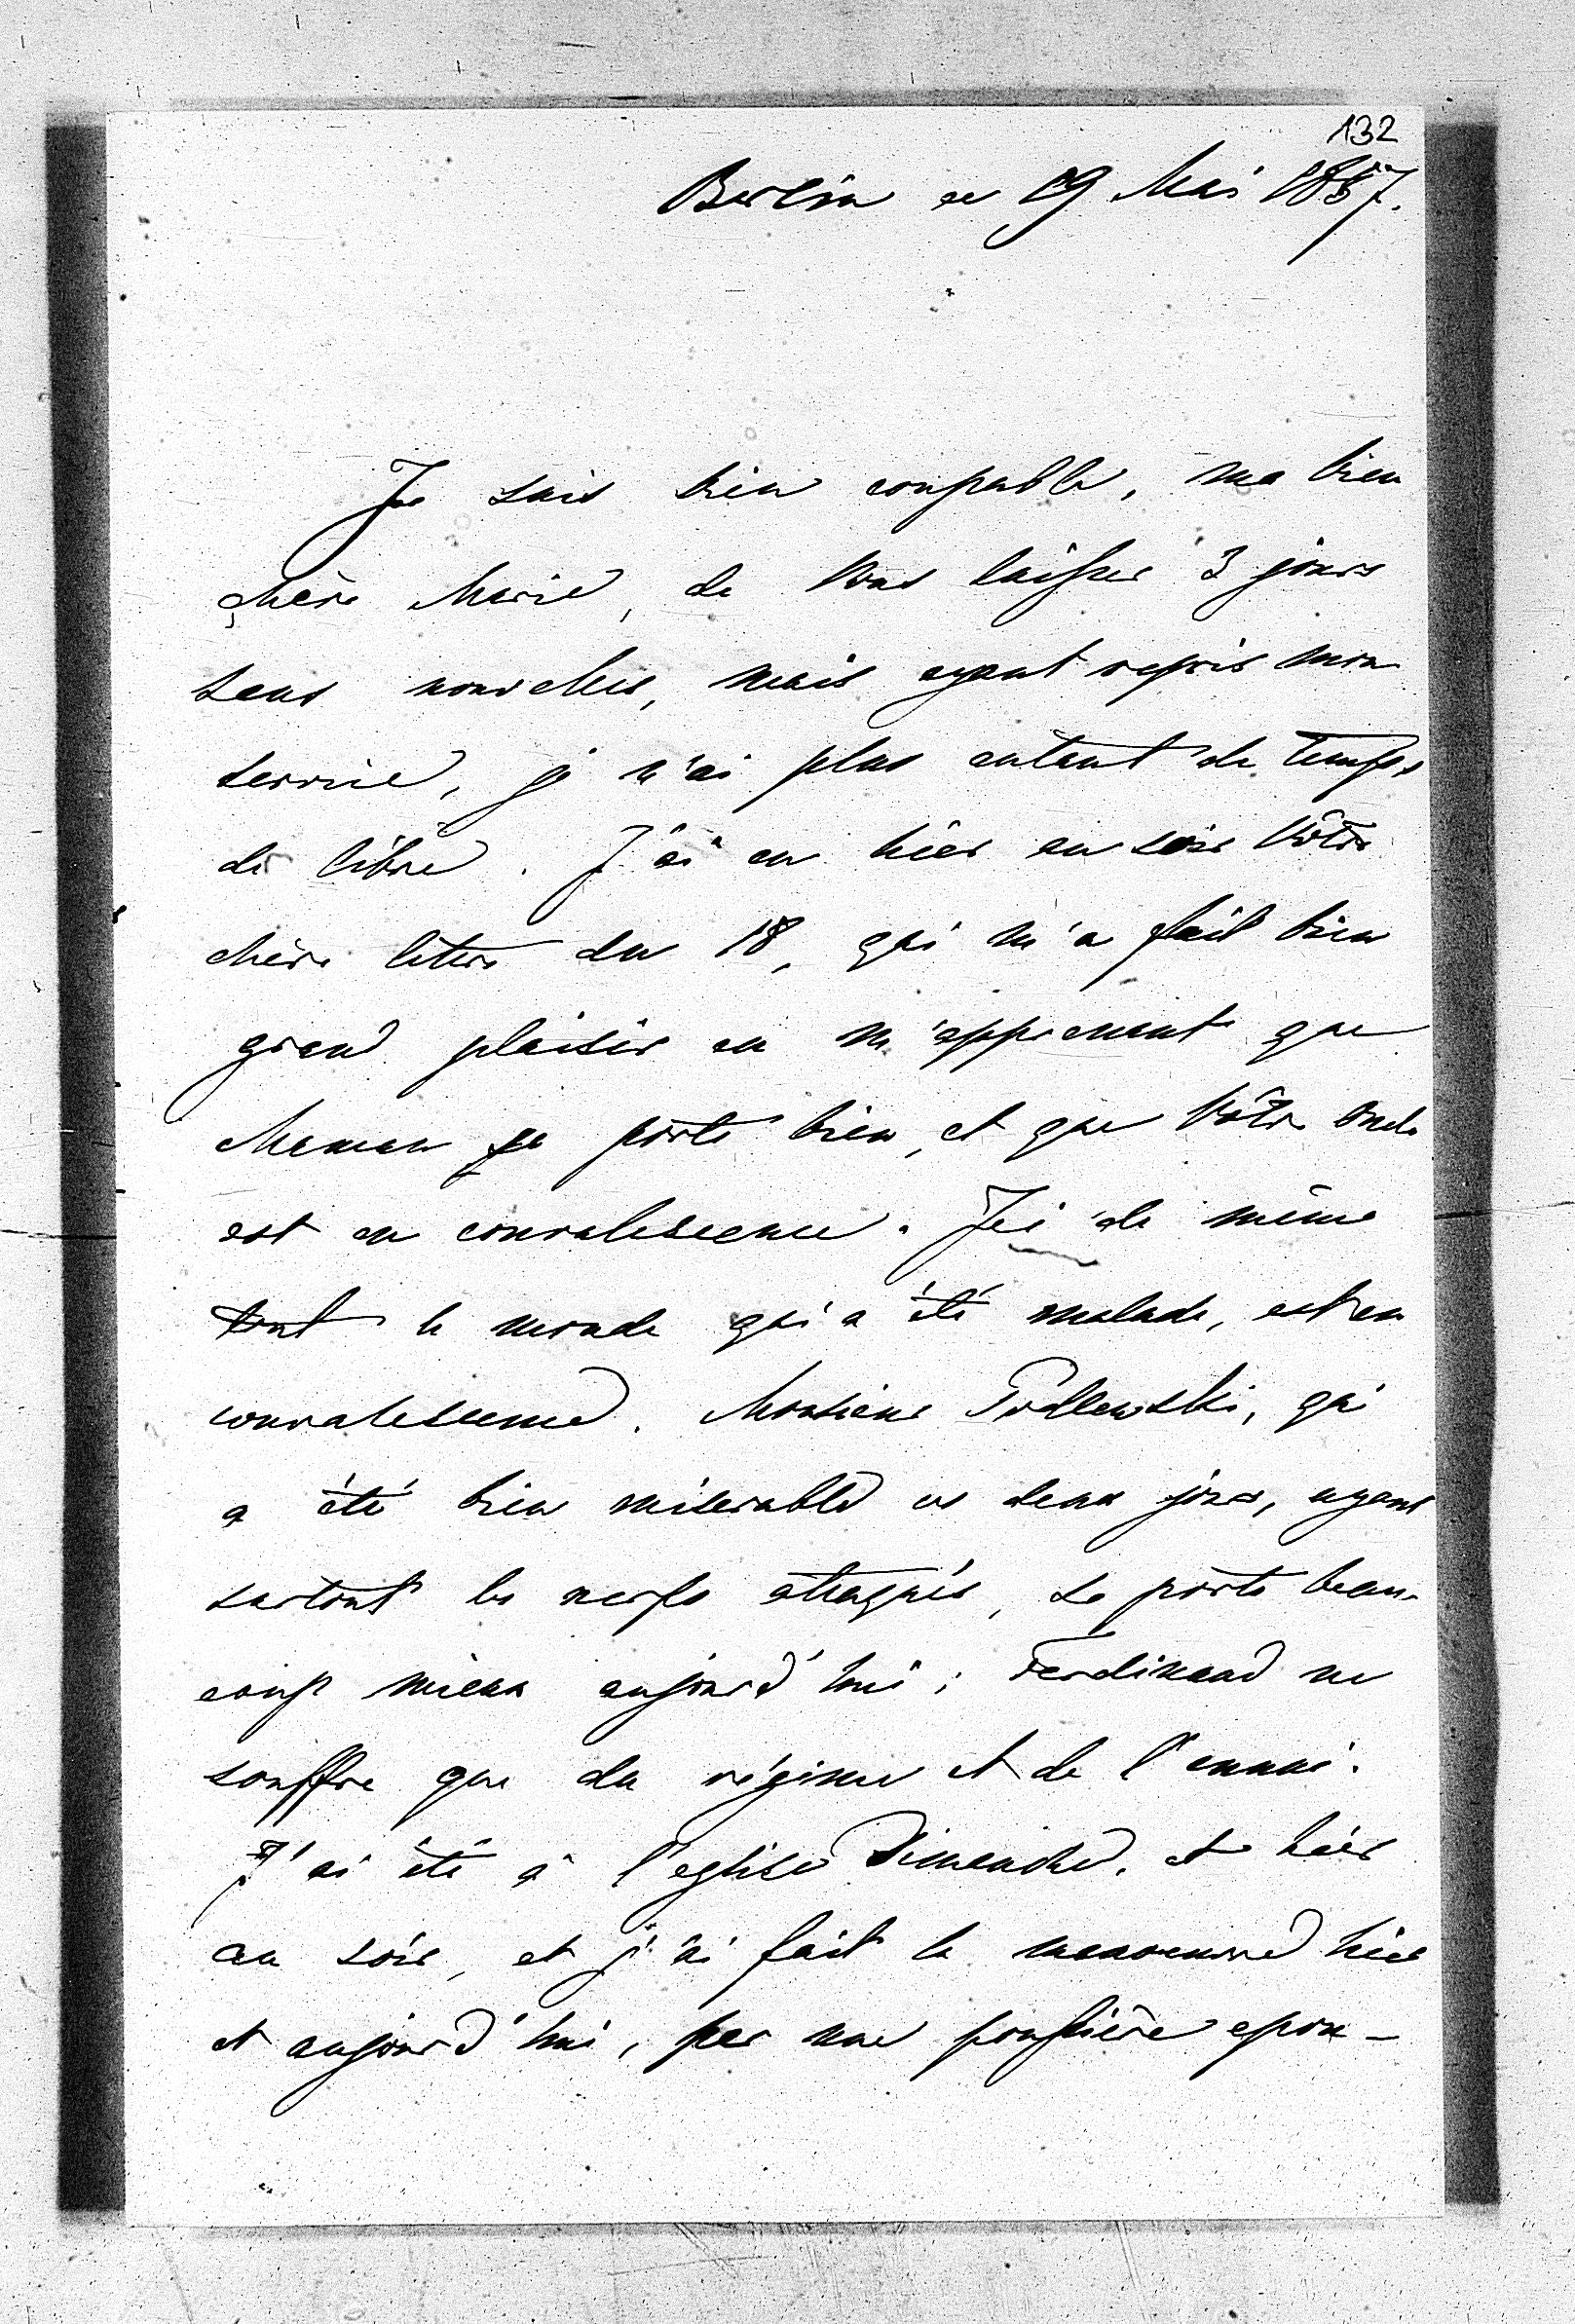 132
Berlin ce 19 Mai 1857.
Je suis bien coupable, ma bien
chère Marie, de Vous laisser 3 jours
sans nouvelles, mais ayant repris mon
service, je n'ai plus autant de temps
de libre. J'ai eu hièr au soir Vôtre
chère lettre du 18, qui m'a fait bien
grand plaisir en m'apprenant que
Maman se porte bien, et que Vôtre oncle
est en convalescence. Ici de même
tout le monde qui a été malade, est en
convalescence. Monsieur Podlewski, qui
a été bien miserable ces deux jours, ayant
surtout les nerfs attaqués, se porte beau-
coup mieux aujourd'hui; Ferdinand ne
souffre que du régime et de l'ennui.
J'ai été à l'eglise Dimanche. et hièr
au soir, et j'ai fait la manoeuvre hièr
et aujourd'hui, par une poussière epou-